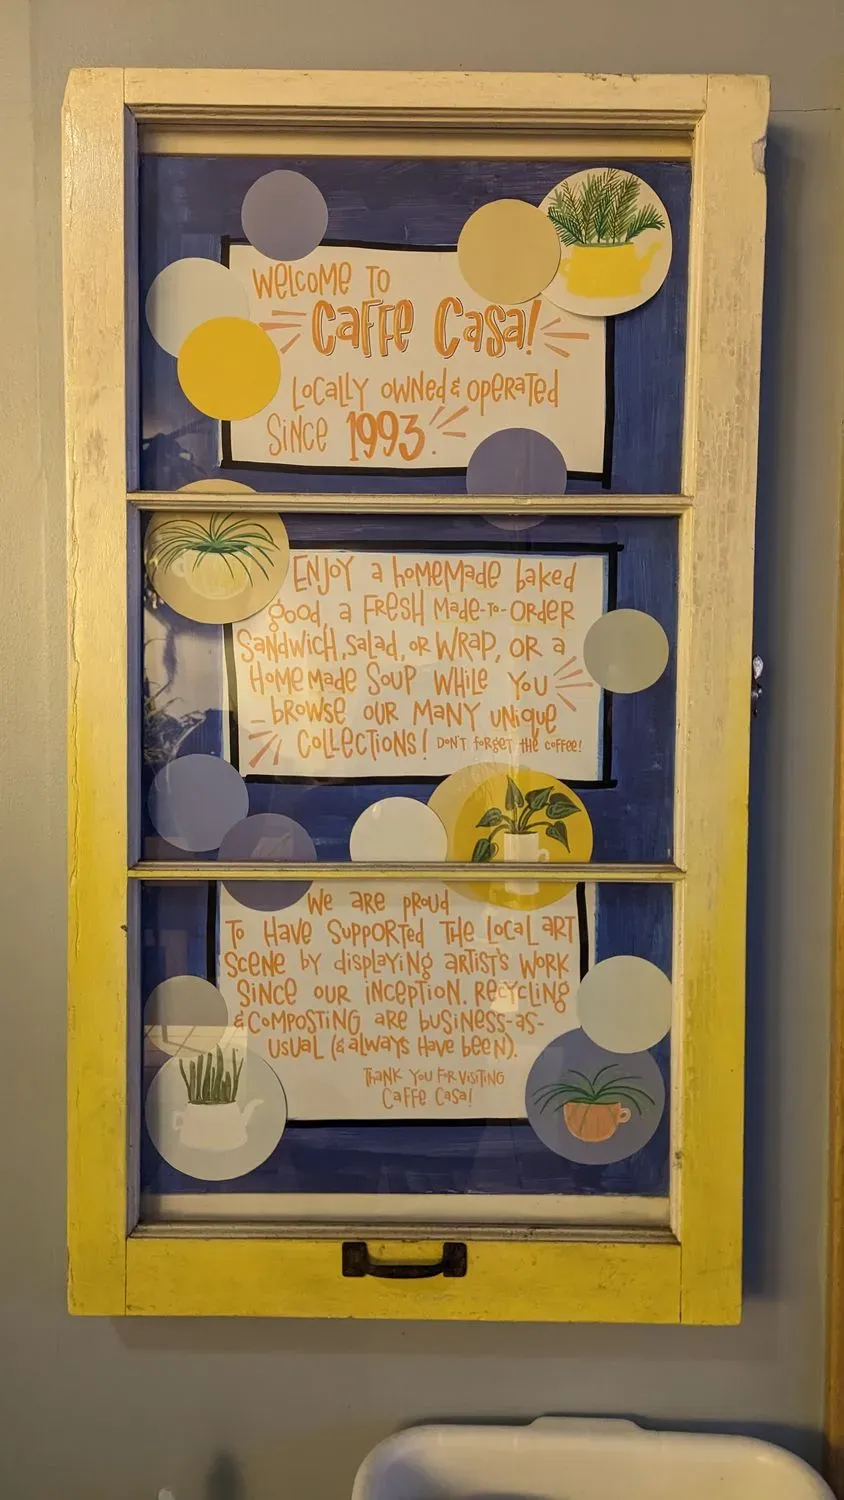 Welcome to
Caffe Casa!
Locally owned & operated
Since 1993.
Enjoy a homemade baked
good, a fresh made-to-order
sandwich, salad, or wrap, or a
homemade soup while you
browse our many unique
collections! Don't forget the coffee!
We are proud
to have supported the local art
scene by displaying artist's work
since our inception. Recycling
& composting are business-as-
usual (& always have been).
Thank you for visiting
Caffe Casa!